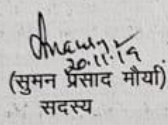 20.11.19
(सुमन प्रसाद मौर्या)
सदस्य